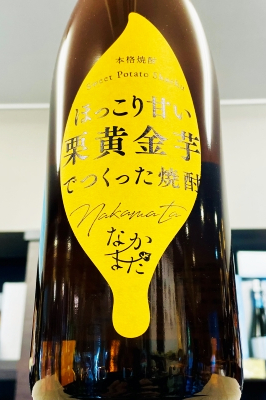 本格焼酎
Sweet Potato Shochu
ほっこり甘い
栗黄金芋
でつくった焼酎
Nakamata
なかまた